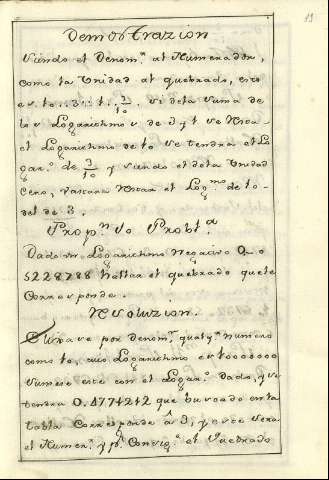 19
Demostrazion
Siendo el Denom.r al Numerador,
como la Unidad al quebrado, esto
es 10..3::1..3/10. Si dela suma de
los Logarithmos de 3 y 1 se resta
el Logarithmo de 10 se tendra el Lo
gar.o de 3/10 y siendo el dela Unidad
Cero, bastara restar el Log.mo de 10
del de 3.
Prop.n 10 Probl.a
Dado un Logarithmo Negativo 0..0
5228788 hallar el quebrado que le
Corresponde.
Resoluzion.
Elixase por Denom.r qualq.r numero
como 10, cuio Logarithmo es 10000000
Sumese este con el Logar.o dado, y se
tendra 0.4771212 que buscado en la
tabla Corresponde â 3, y este sera
el Numer.r y p.r Conseq.a el Quebrado